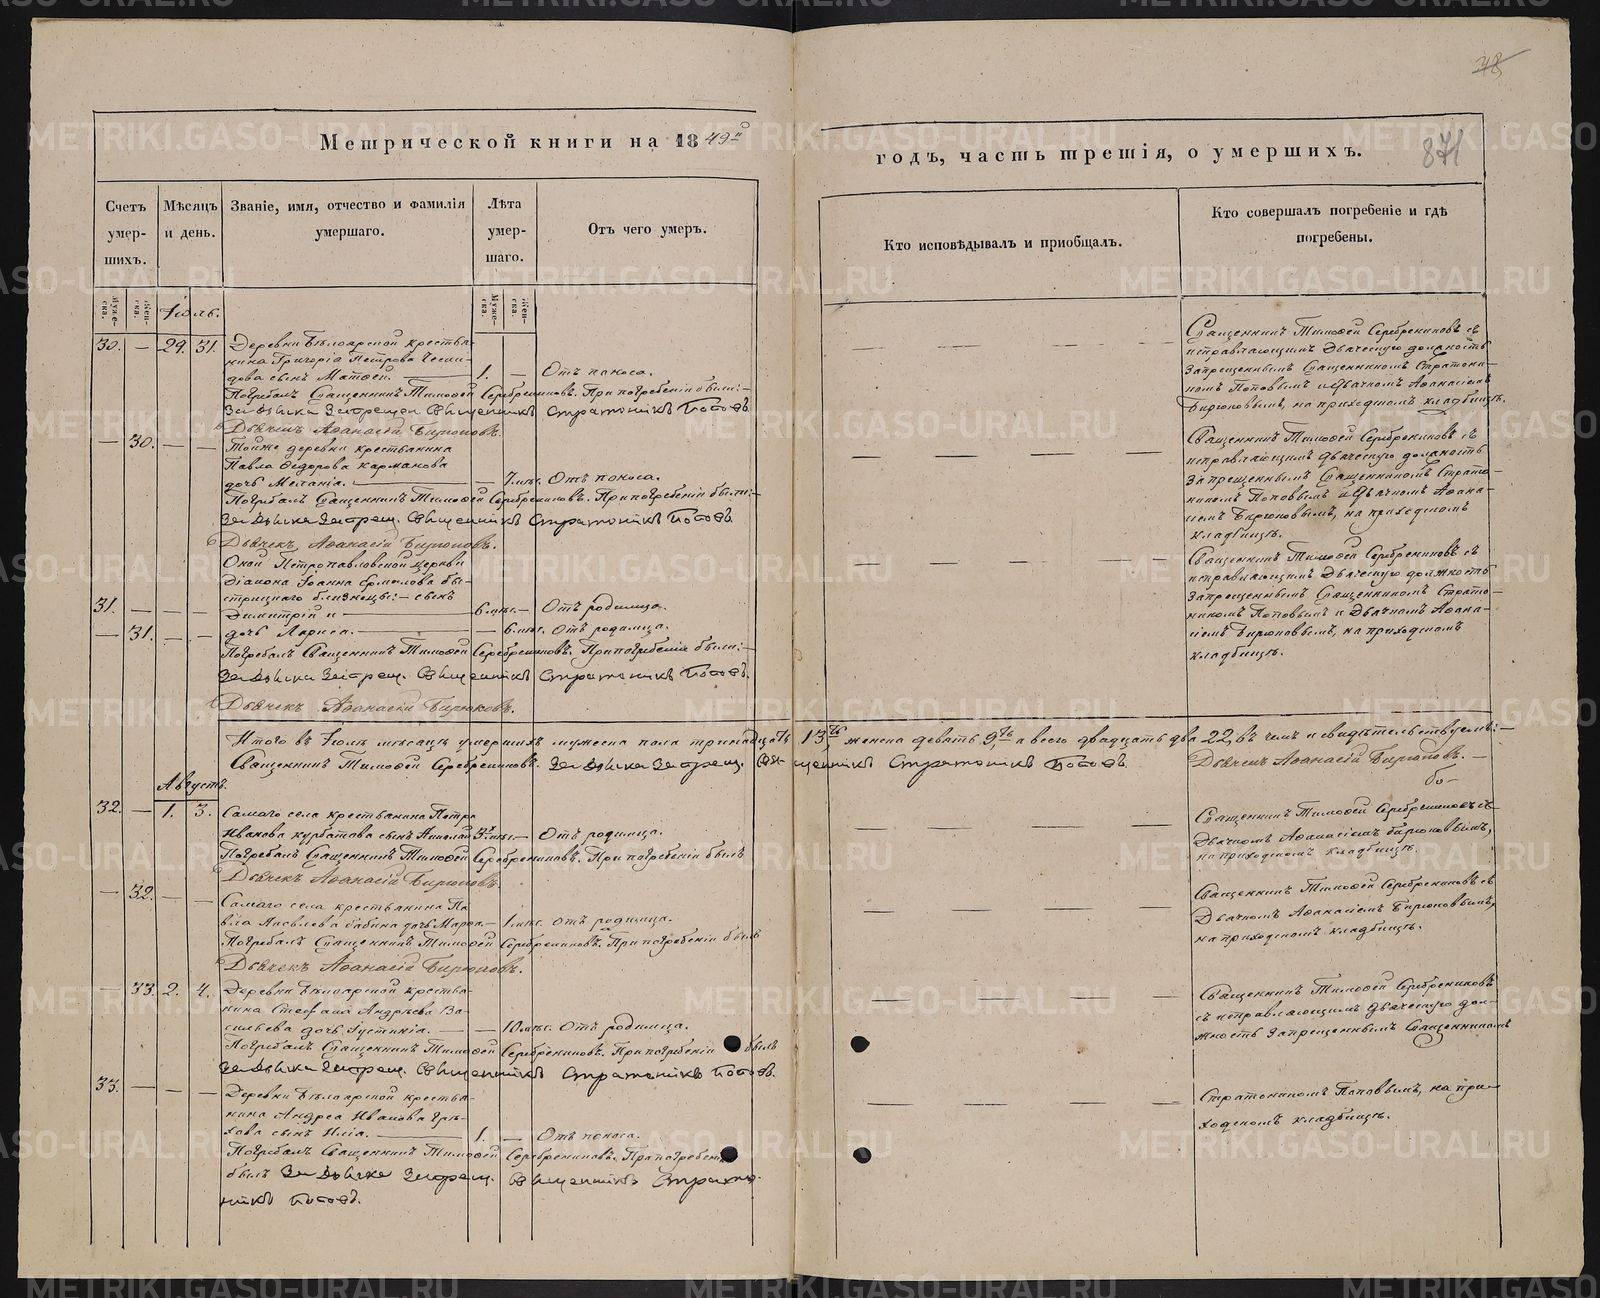 Метрической книги на 1849й
Счетъ умер-шихъ.
Мѣсяцъ и день.
Званіе, имя, отчество и фамилія умершаго.
Лѣта умер-шаго.
Отъ чего умеръ.
Муже-ска.
Жен-ска.
Муже-ска.
Жен-ска.
Іюль.
30. — 29. 31. Деревни Бѣлоярской крестья-
нина Григорія Петрова
сынъ Матѳей. — 1. — Отъ поноса.
Погребалъ Священникъ Тимоѳей Серебрениковъ. При погребеніи были:—
За Дьячка Запрещен Священникъ Стратоникъ Поповъ.
Дьячекъ Аѳанасій Бирюковъ.
— 30. — — Тойже деревни крестьянина
Павла Ѳедорова Карманова
дочь Меланія. — — 7.мѣс. Отъ поноса.
Погребалъ Священникъ Тимоѳей Серебрениковъ. При погребеніи были:—
За Дьячка Запрещ. Священникъ Стратоникъ Поповъ.
Дьячекъ Аѳанасій Бирюковъ.
Оной Петропавловской церкви
Діакона Іоанна Ермолова
близнецы:— сынъ
31. — — — Димитрій и — 6.мѣс.— Отъ родимца.
— 31. — — дочь Лариса. — — 6.мѣс. Отъ родимца.
Погребалъ Священникъ Тимоѳей Серебрениковъ. При погребеніи были:—
За Дьячка Запрещ. Священникъ Стратоникъ Поповъ.
Дьячекъ Аѳанасій Бирюковъ.
Итого въ Іюлѣ мѣсяцѣ умершихъ мужеска пола тринадцать 13ть, женска девять 9ть, а всего двадцать два 22, въ чемъ и свидѣтельствуемъ:—
Священникъ Тимоѳей Серебрениковъ. За Дьячка Запрещ. Священникъ Стратоникъ Поповъ. Дьячекъ Аѳанасій Бирюковъ.—
Августъ.
32. — 1. 3. Самаго села крестьянина Петра
Иванова Курбатова сынъ Николай мѣс.— Отъ родимца.
Погребалъ Священникъ Тимоѳей Серебрениковъ. При погребеніи былъ
Дьячекъ Аѳанасій Бирюковъ.
— 32. — — Самаго села крестьянина Па-
вла Яковлева Бабина дочь Марѳа.— 1.мѣс. Отъ родимца.
Погребалъ Священникъ Тимоѳей Серебрениковъ. При погребеніи былъ
Дьячекъ Аѳанасій Бирюковъ.
— 33. 2. 4. Деревни Бѣлоярской крестья-
нина Стефана Андрѣева Ва-
сильева дочь Іустинія. — — 10.мѣс. Отъ родимца.
Погребалъ Священникъ Тимоѳей Серебрениковъ. При погребеніи былъ
За Дьячка Запрещ. Священникъ Стратоникъ Поповъ.
33. — — — Деревни Бѣлоярской крестья-
нина Андрея Иванова Грѣ-
хова сынъ Илія. — 1. — Отъ поноса.
Погребалъ Священникъ Тимоѳей Серебрениковъ. При погребеніи
былъ За Дьячка Запрещ. Священникъ Страто-
никъ Поповъ.
871
годъ, часть третія, о умершихъ.
Кто исповѣдывалъ и приобщалъ.
Кто совершалъ погребеніе и гдѣ погребены.
Священникъ Тимоѳей Серебрениковъ съ
исправляющимъ Дьяческую должность
Запрещеннымъ Священникомъ Стратони-
комъ Поповымъ и Дьячкомъ Аѳанасіемъ
Бирюковымъ, на приходскомъ кладбищѣ.
Священникъ Тимоѳей Серебрениковъ съ
исправляющимъ Дьяческую должность
Запрещеннымъ Священникомъ Страто-
никомъ Поповымъ и Дьячкомъ Аѳана-
сіемъ Бирюковымъ, на приходскомъ
кладбищѣ.
Священникъ Тимоѳей Серебрениковъ съ
исправляющимъ Дьяческую должность
Запрещеннымъ Священникомъ Страто-
никомъ Поповымъ и Дьячкомъ Аѳана-
сіемъ Бирюковымъ, на приходскомъ
кладбищѣ.
Священникъ Тимоѳей Серебрениковъ съ
Дьячкомъ Аѳанасіемъ Бирюковымъ,
на приходскомъ кладбищѣ.
Священникъ Тимоѳей Серебрениковъ съ
Дьячкомъ Аѳанасіемъ Бирюковымъ,
на приходскомъ кладбищѣ.
Священникъ Тимоѳей Серебрениковъ
съ исправляющимъ Дьяческую дол-
жность Запрещеннымъ Священникомъ
Стратоникомъ Поповымъ, на при-
ходскомъ кладбищѣ.
METRIKI.GASO-URAL.RU